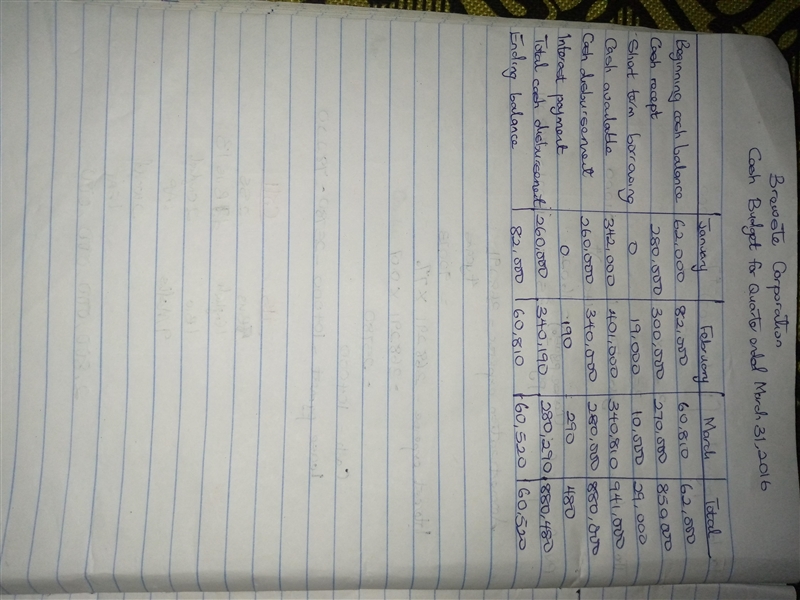 Breweste Corporation
Cash Budget for Quarter ended March 31, 2016
January February March Total
Beginning cash balance 62,000 82,000 60,810 62,000
Cash recept 280,000 300,000 270,000 850,000
Short term borrowing 0 19,000 10,000 29,000
Cash available 342,000 401,000 340,810 941,000
Cash disbursement 260,000 340,000 280,000 880,000
Interest payment 0 190 290 480
Total cash disbursement 260,000 340,190 280,290 880,480
Ending balance 82,000 60,810 60,520 60,520